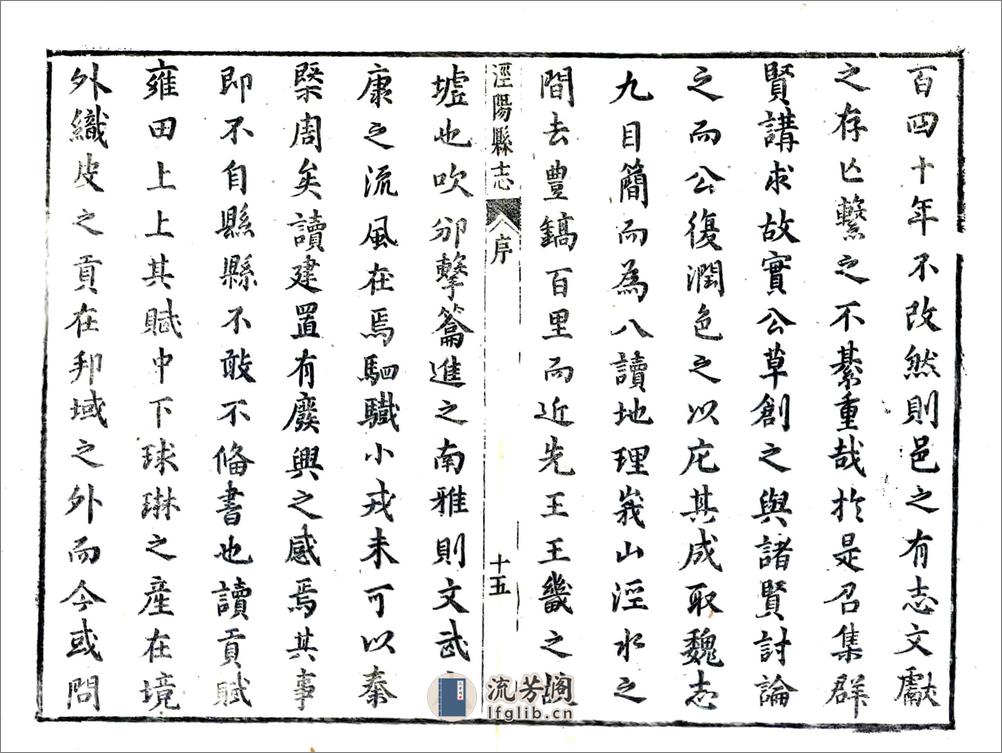 百四十年不改然則邑之有志文獻
之存亾繫之不綦重哉於是召集群
賢講求故實公草創之與諸賢討論
之而公復潤色之以庀其成取魏志
九目簡而為八讀地理峩山涇水之
間去豊鎬百里而近先王王畿之
涇陽縣志
序
十五
墟也吹邠擊籥進之南雅則文武
康之流風在焉駟驖小戎未可以秦
槩周矣讀建置有廢興之感焉其事
即不自縣縣不敢不俻書也讀貢賦
雍田上上其賦中下球琳之産在境
外織皮之貢在邦域之外而今或問
流芳阁
lfglib.cn